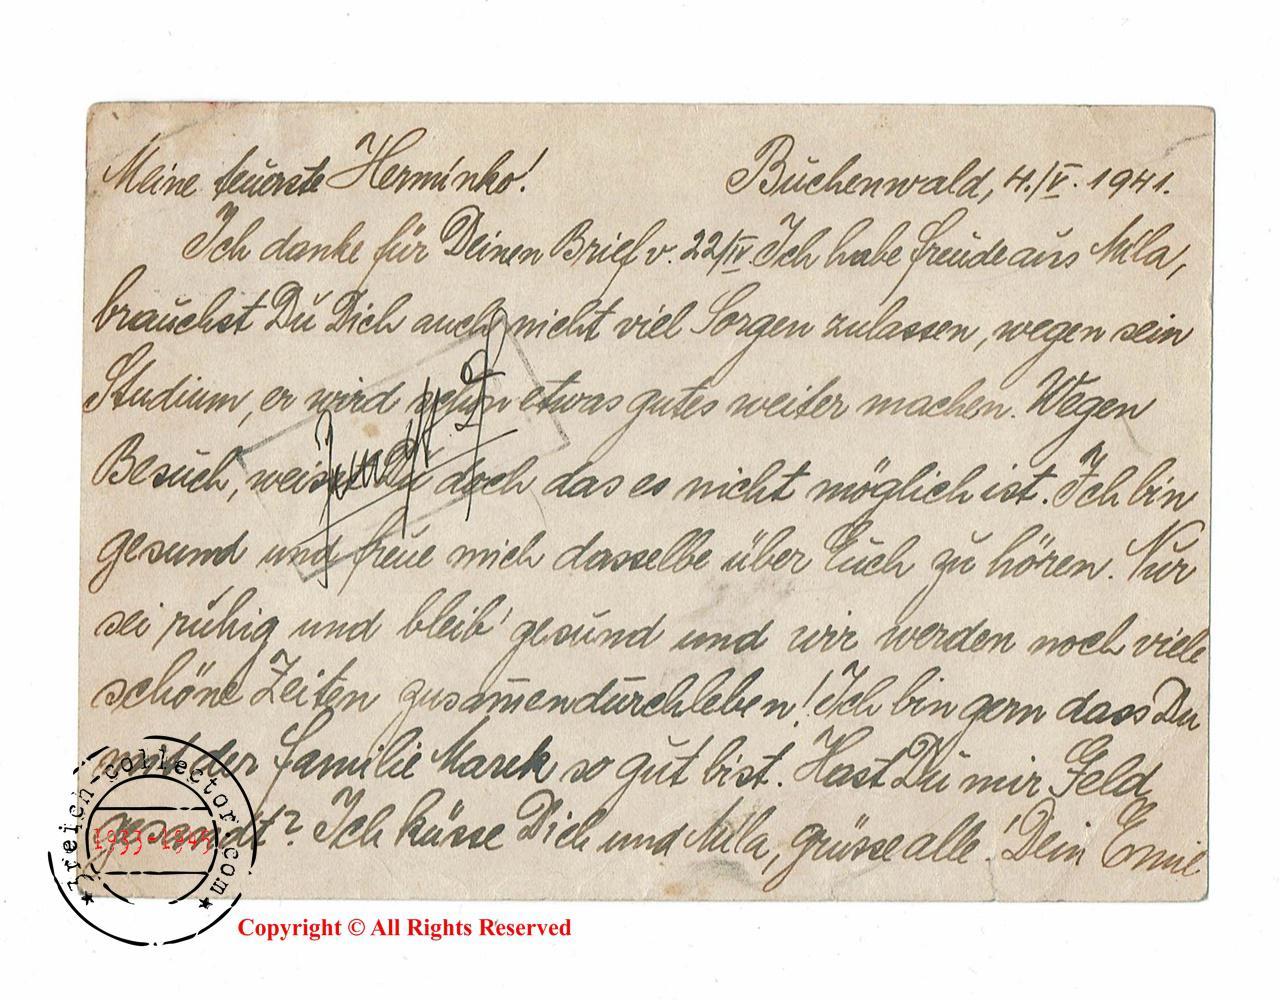 Meine teuerste Herminko! Buchenwald, 4./V. 1941.
Ich danke für Deinen Brief v. 22/IV Ich habe freude aus Mila,
brauchst Du Dich auch nicht viel Sorgen zulassen, wegen sein
Studium, er wird schon etwas gutes weiter machen. Wegen
Besuch, weisst Du doch das es nicht möglich ist. Ich bin
gesund und freue mich dasselbe über Euch zu hören. Nur
sei ruhig und bleib' gesund und wir werden noch viele
schöne Zeiten zusam̅endurchleben! Ich bin gern dass Du
mit der familie Marek so gut bist. Hast Du mir Geld
gesandt? Ich küsse Dich und Mila, grüsse alle! Dein Emil
3reich-collector.com
1933-1945
Copyright © All Rights Reserved